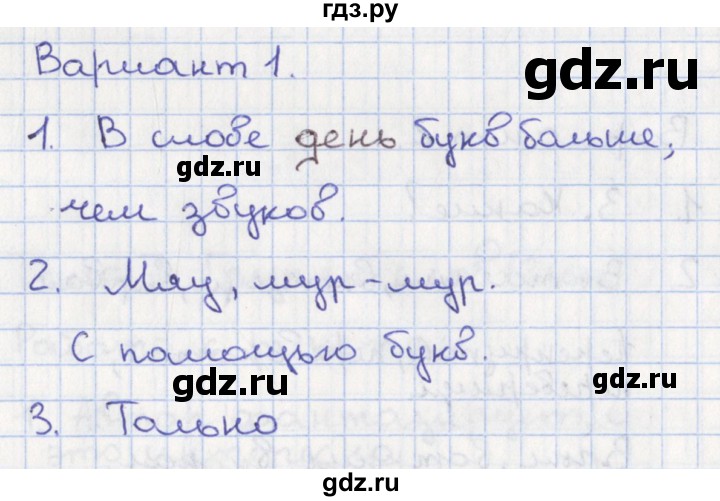 гдз.ру
Вариант 1.
gdz.ru
1. В слове день букв больше,
gdz.ru
чем звуков.
2. Мяу, мур-мур.
С помощью букв.
gdz.ru
gdz.ru
3. Только
gdz.ru